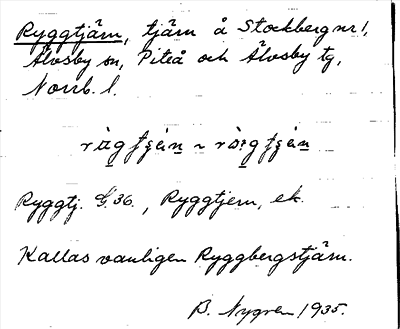 Ryggtjärn, tjärn å Stockberg nr 1,
Älvsby sn, Piteå och Älvsby tg,
Norrb. l.
Ryggtj. G. 36., Ryggtjern, ek.
Kallas vanligen Ryggbergstjärn.
B. Nygren 1935.